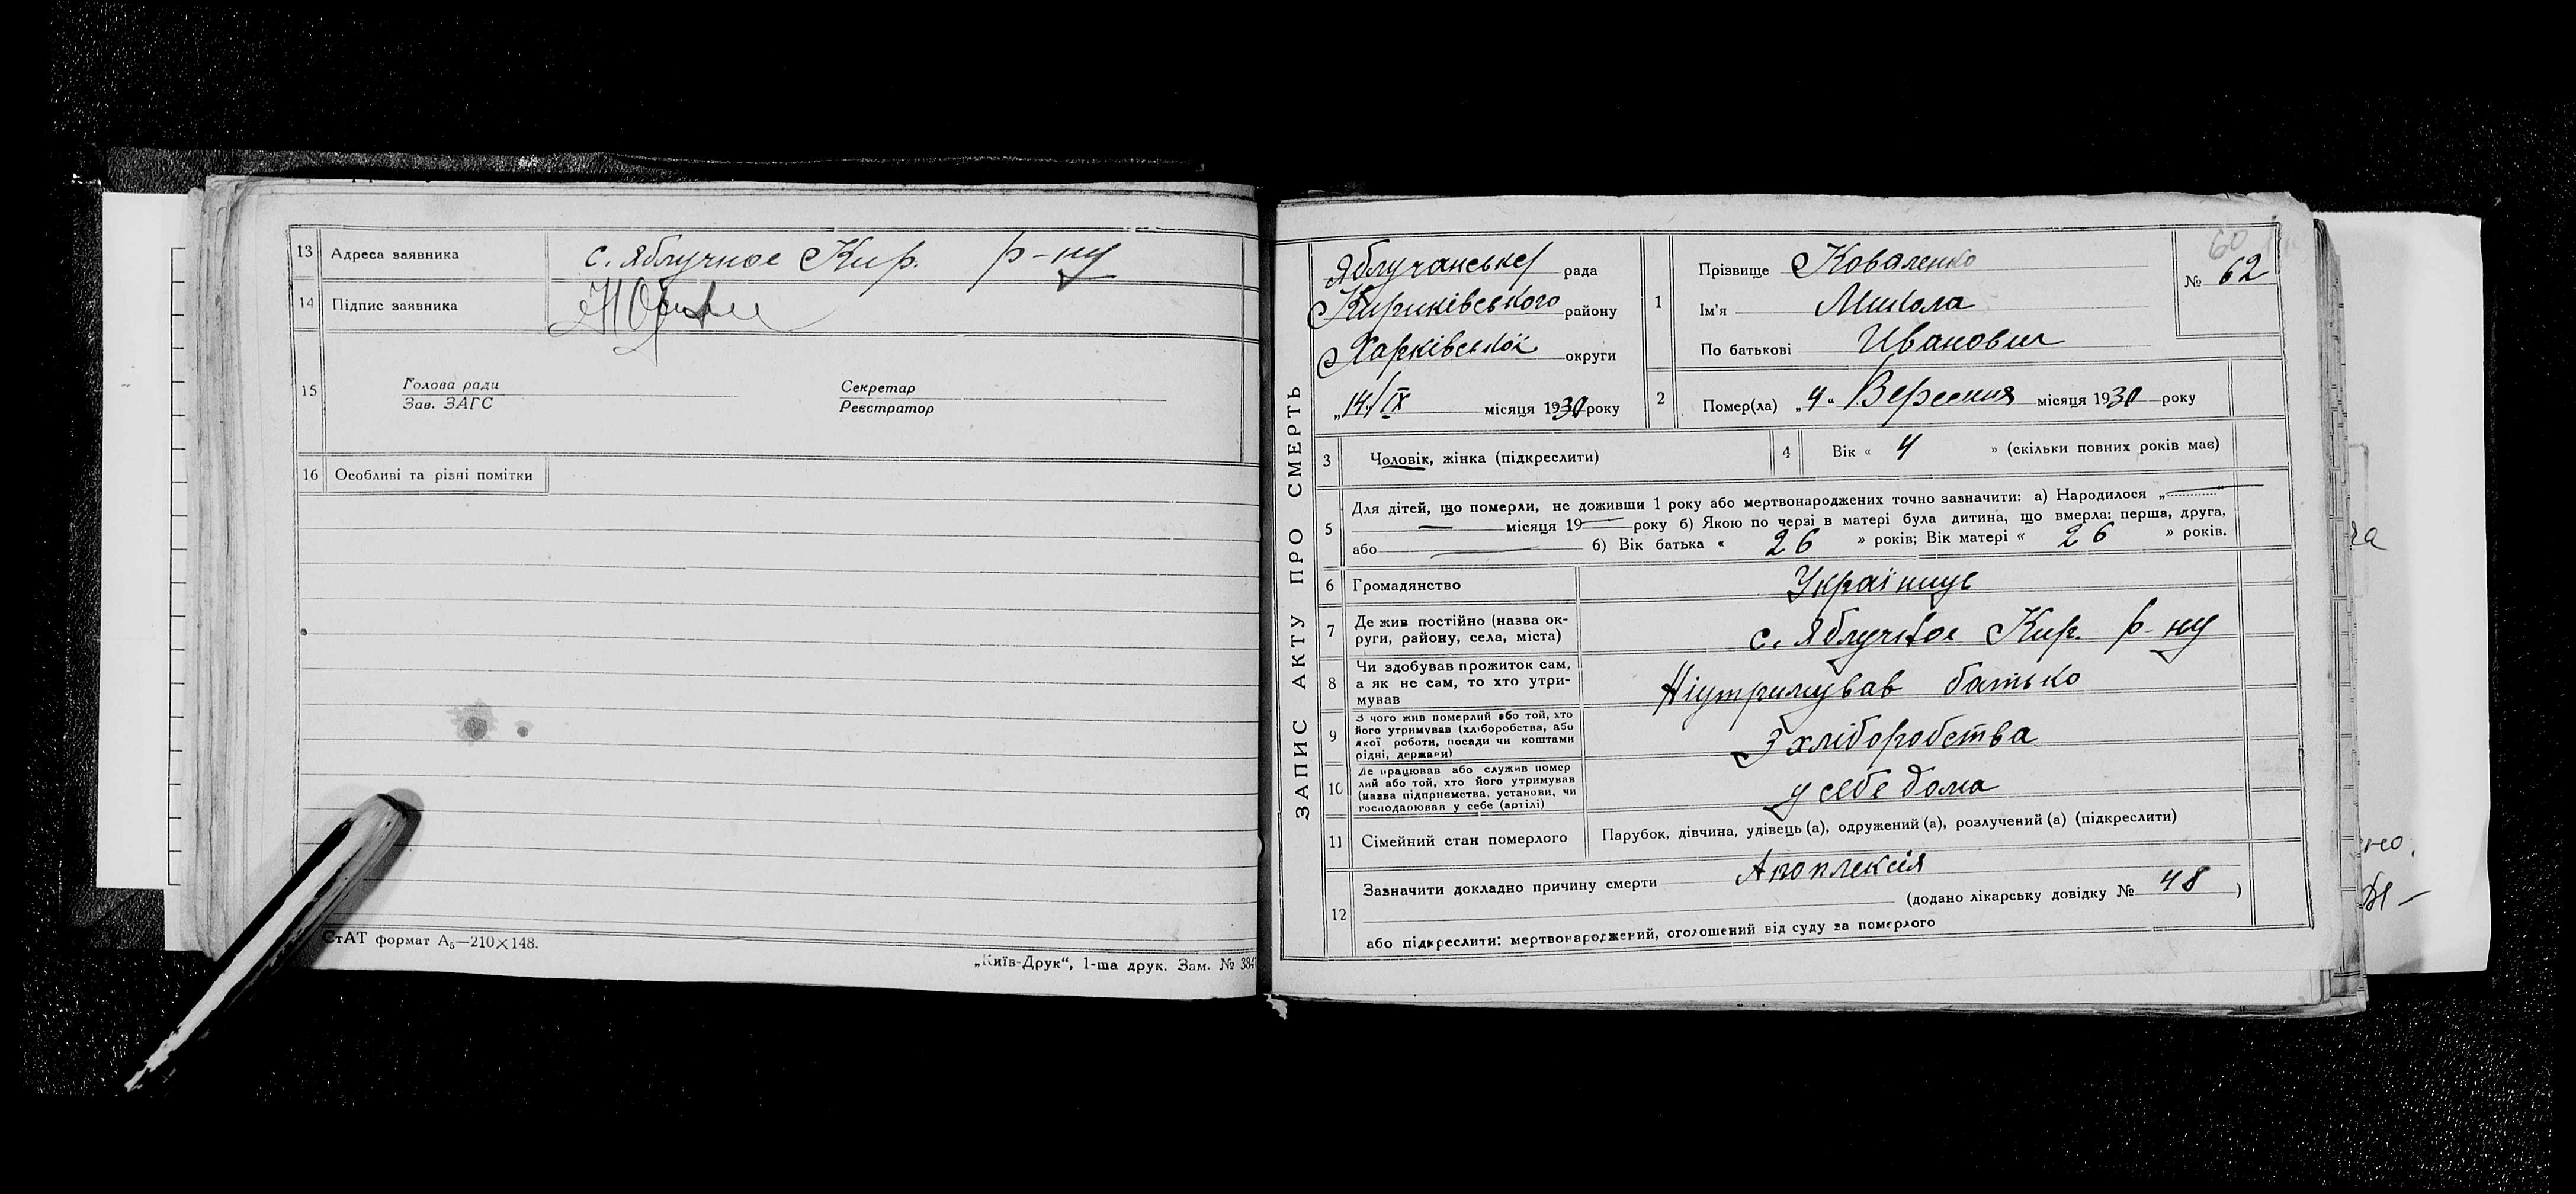 13 Адреса заявника с. Яблучное Кир. р-ну
14 Підпис заявника
15 Голова ради Секретар
Зав. ЗАГС Реєстратор
16 Особливі та різні помітки
СтАТ формат А₅—210×148.
„Київ-Друк“, 1-ша друк. Зам. № 384
ЗАПИС АКТУ ПРО СМЕРТЬ
Яблучанської рада
Кириківського району
Харківської округи
„14/IX місяця 1930 року
60
№ 62
1 Прізвище Коваленко
Ім'я Микола
По батькові Иванович
2 Помер(ла) „4“ Вересния місяця 1930 року
3 Чоловік, жінка (підкреслити)
4 Вік « 4 » (скільки повних років має)
5 Для дітей, що померли, не доживши 1 року або мертвонароджених точно зазначити: а) Народилося „—“
— місяця 19— року б) Якою по черзі в матері була дитина, що вмерла: перша, друга,
або — б) Вік батька « 26 » років; Вік матері « 26 » років.
6 Громадянство Українць
7 Де жив постійно (назва ок-
руги, району, села, міста) с. Яблучное Кир. р-ну
8 Чи здобував прожиток сам,
а як не сам, то хто утри-
мував Ніутримував батько
9 З чого жив померлий або той, хто
його утримував (хліборобства, або
якої роботи, посади чи коштами
рідні, держави) З хліборобства
10 Де працював або служив помер
лий або той, хто його утримував
(назва підприємства, установи, чи
господарював у себе (артілі) у себе дома
11 Сімейний стан померлого Парубок, дівчина, удівець (а), одружений (а), розлучений (а) (підкреслити)
12 Зазначити докладно причину смерти Апоплексія
(додано лікарську довідку № 48)
або підкреслити: мертвонароджений, оголошений від суду за померлого